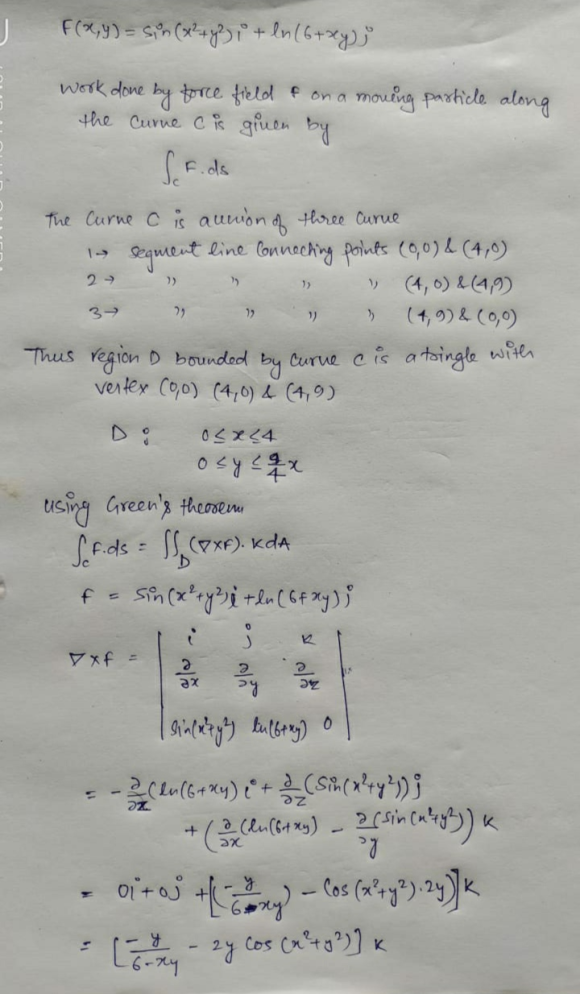 F(x,y) = Sin(x²+y²)i + ln(6+xy)j
Work done by force field F on a moving particle along
the Curve C is given by
∫_C F.ds
The Curve C is a union of three Curve
1→ segment line Connecting points (0,0) & (4,0)
2→ ,, ,, ,, ,, (4,0) & (4,9)
3→ ,, ,, ,, ,, (4,9) & (0,0)
Thus region D bounded by Curve C is a toingle with
vertex (0,0) (4,0) & (4,9)
D : 0≤x≤4
0≤y≤9/4 x
using Green's theorem
∫_C F.ds = ∬_D (∇×F). K dA
f = Sin(x²+y²)i + ln(6+xy)j
∇×f = | i j k |
| ∂/∂x ∂/∂y ∂/∂z |
| Sin(x²+y²) ln(6+xy) 0 |
= -∂/∂z (ln(6+xy)) i + ∂/∂z (Sin(x²+y²)) j
+ (∂/∂x (ln(6+xy) - ∂/∂y (sin(x²+y²)) K
= 0i+0j + [(-y/6-xy) - Cos(x²+y²).2y)] K
= [-y/6-xy - 2y Cos(x²+y²)] K